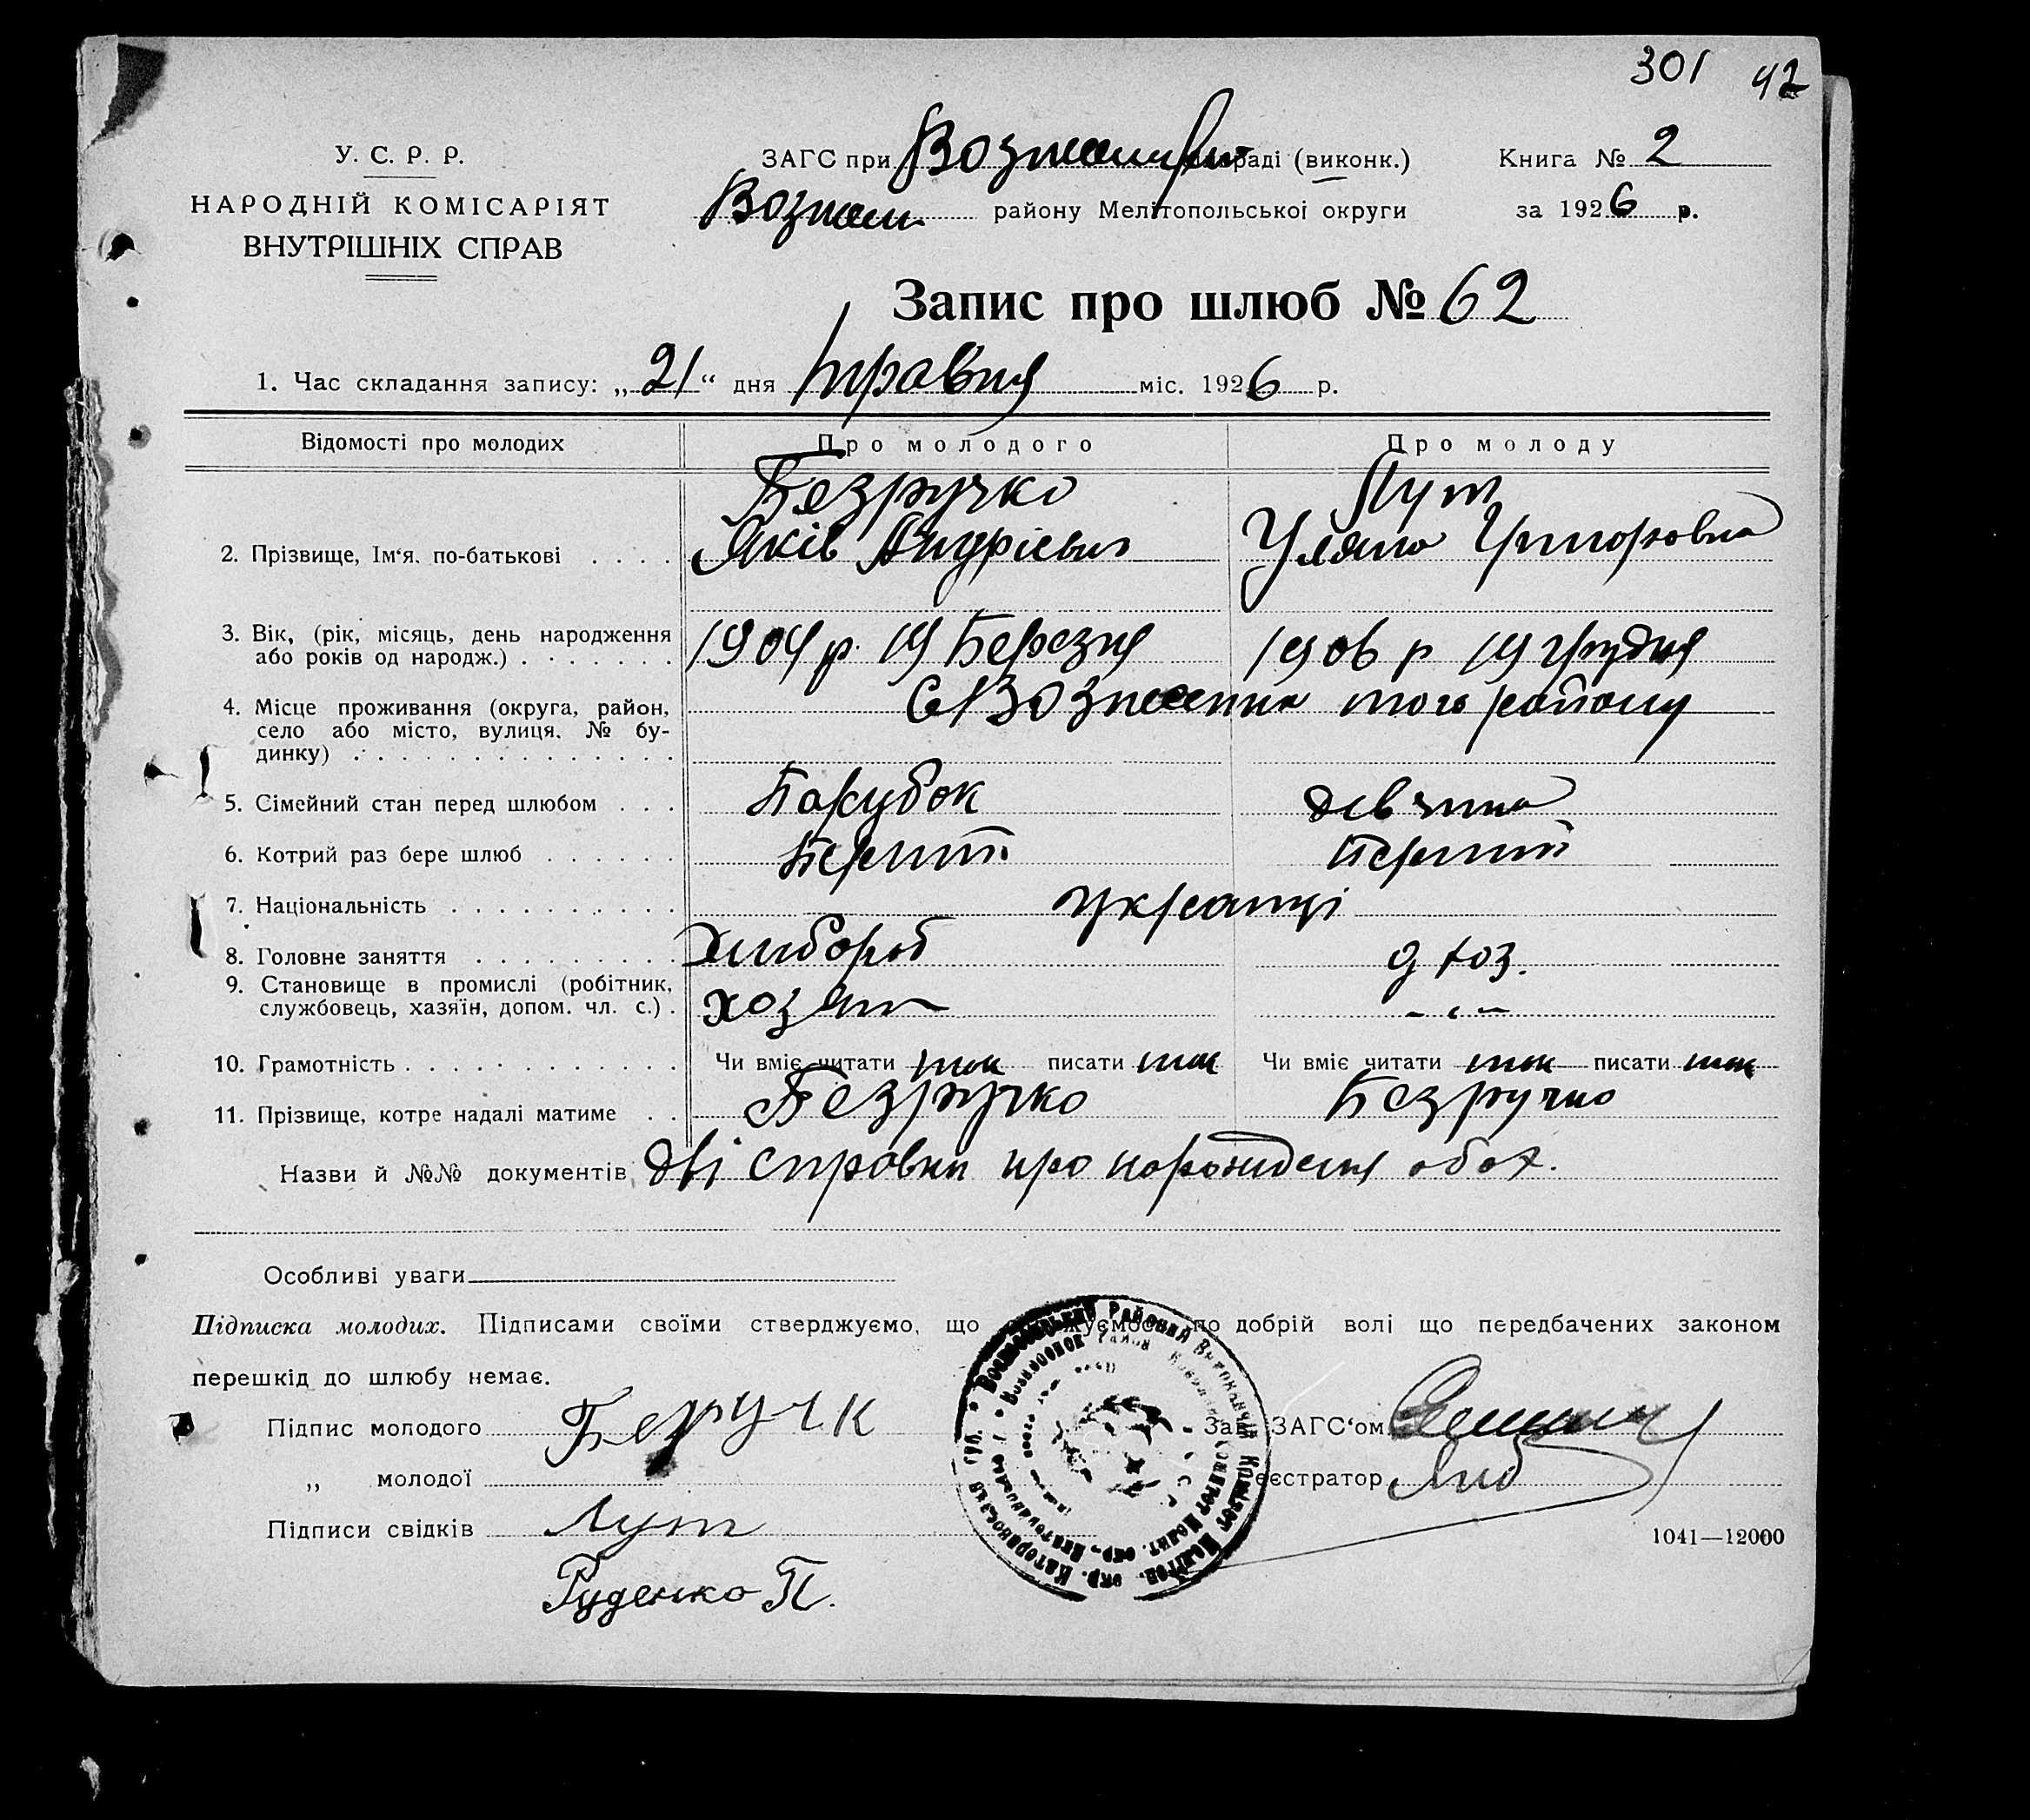 301 42
У. С. Р. Р.
НАРОДНІЙ КОМІСАРІЯТ
ВНУТРІШНІХ СПРАВ
ЗАГС при раді (виконк.) Книга № 2
Вознесен району Мелітопольської округи за 1926 р.
Запис про шлюб № 62
1. Час складання запису: „21“ дня травня міс. 1926 р.
Відомості про молодих Про молодого Про молоду
Безручко Лут
2. Прізвище, Ім‘я, по-батькові . . . . Яків Андрієвич Уляна Григоровна
3. Вік, (рік, місяць, день народження
або років од народж.) . . . . . . . 1904 р. 19 Березня 1906 р 19 грудня
4. Місце проживання (округа, район, с Вознесенка того району
село або місто, вулиця, № бу-
динку) . . . . . . . . . . . . . . .
5. Сімейний стан перед шлюбом . . . Парубок дівчина
6. Котрий раз бере шлюб . . . . . . Перший Перший
7. Національність . . . . . . . . . . українці
8. Головне заняття . . . . . . . . . хлибороб д хоз.
9. Становище в промислі (робітник,
службовець, хазяїн, допом. чл. с.) . хозяин - „ -
10. Грамотність . . . . . . . . . . . . Чи вміє читати так писати так Чи вміє читати так писати так
11. Прізвище, котре надалі матиме . . Безручко Безручко
Назви й №№ документів дві справки про народження обох.
Особливі уваги
Підписка молодих. Підписами своїми стверджуємо, що по добрій волі що передбачених законом
перешкід до шлюбу немає.
Підпис молодого Безручк Зав. ЗАГС‘ом
„ молодої еєстратор
Підписи свідків Лут 1041—12000
Руденко П.